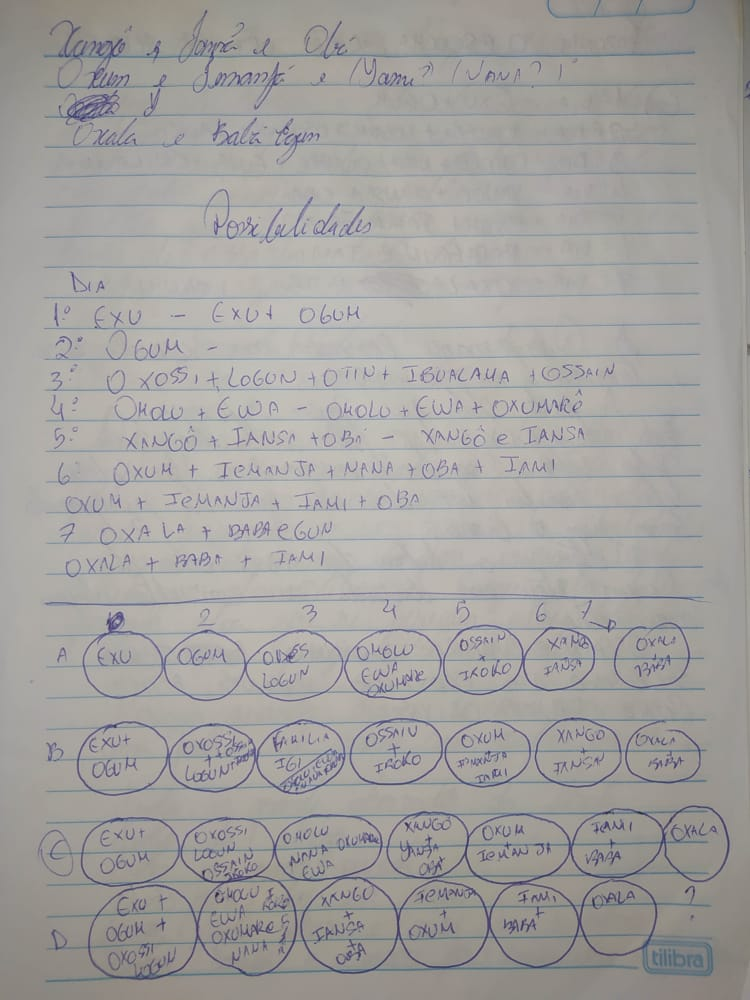 Xangô e Iansã e Obá
Oxum e Iemanjá e (Yami?) (NANA?)
Oxala e Babá Egun
Possibilidades
DIA
1º EXU - EXU + OGUM
2º OGUM -
3º OXOSSI + LOGUN + OTIN + IBUALAMA + OSSAIN
4º OMOLU + EWA - OMOLU + EWA + OXUMARÊ
5º XANGÔ + IANSA + OBÁ - XANGÔ e IANSA
6º OXUM + IEMANJA + NANA + OBA + IAMI
OXUM + IEMANJA + IAMI + OBA
7 OXALA + BABA EGUN
OXALA + BABA + IAMI
2 3 4 5 6 7 →
A
EXU
OGUM
LOGUN
OMOLU
EWA
OXUMARE
OSSAIN
+
IROKO
XANG
IANSA
OXALA
+
BABA
B
EXU +
OGUM
OXOSSI
+
LOGUN
FAMILIA
IGI
OSSAIN
+
IROKO
OXUM
+
IEMANJA
IAMI
XANGO
+
IANSA
OXALA
+
BABA
C
EXU +
OGUM
OXOSSI
LOGUN
OSSAIN
IROKO
OMOLU
NANA OXUMARE
EWA
XANGÔ
+
YANSA
OBA
OXUM
+
IEMANJA
IAMI
+
BABA
OXALA
D
EXU +
OGUM +
OXOSSI
LOGUN
OMOLU
EWA
OXUMARE
NANA
XANGO
+
IANSA
+
OBA
IEMANJA
+
OXUM
IAMI
+
BABA
OXALA
?
tilibra